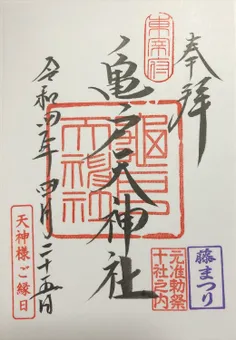 奉拝
東宰府
亀戸天神社
亀戸天神社
令和四年四月二十五日
天神様ご縁日
元准勅祭
十社之内
藤まつり